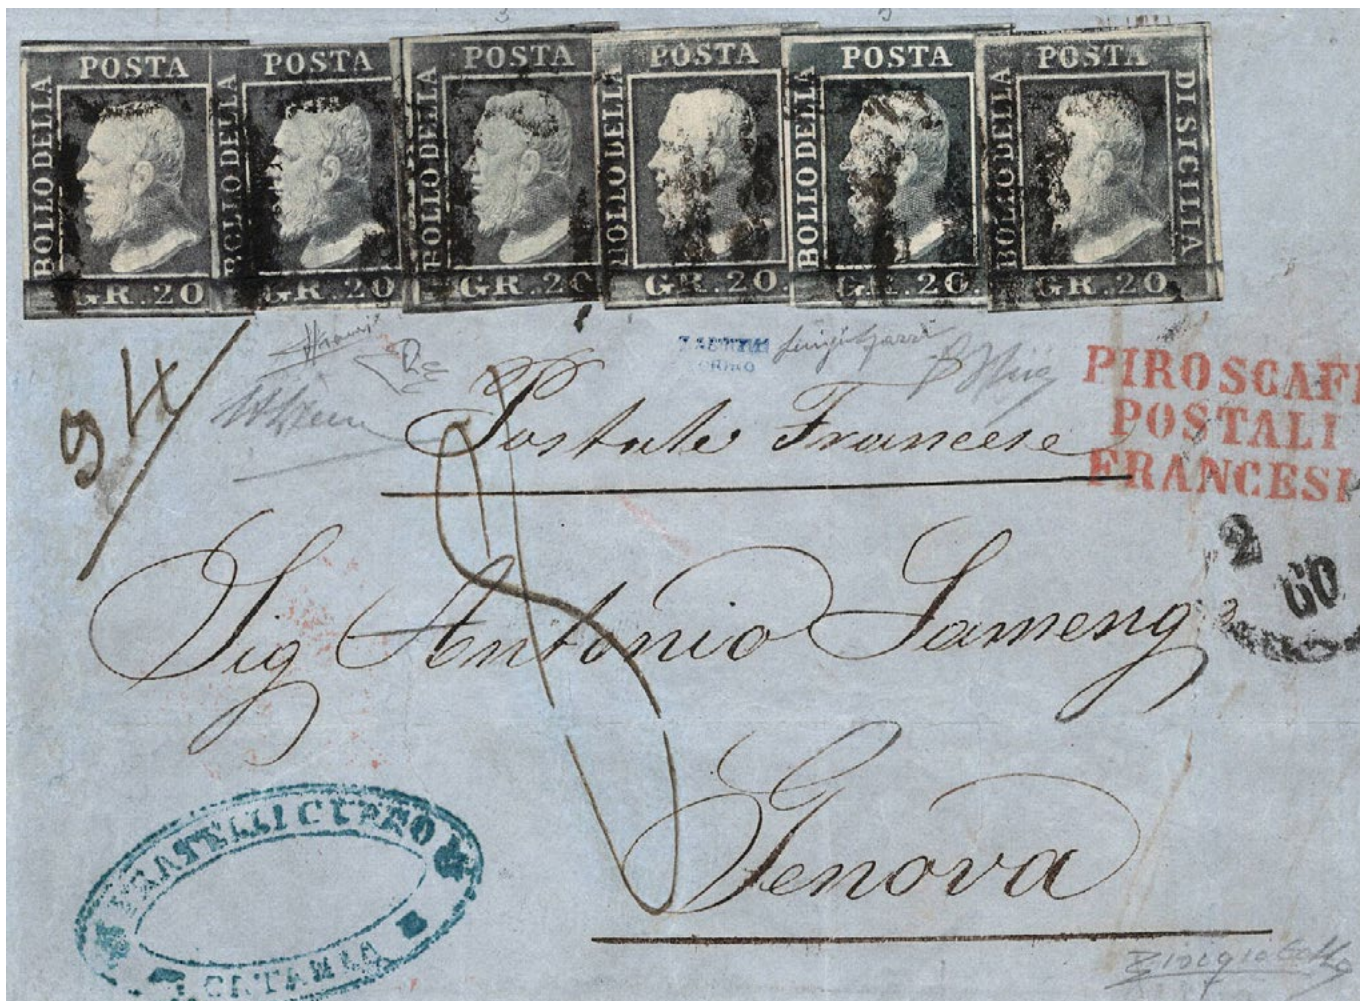 POSTA
BOLLO DELLA
GR. 20
POSTA
BOLLO DELLA
GR. 20
POSTA
BOLLO DELLA
GR. 20
POSTA
BOLLO DELLA
GR. 20.
POSTA
BOLLO DELLA
GR. 20.
POSTA
BOLLO DELLA
DI SICILIA
GR. 20
94
Postale Francese
PIROSCAFI
POSTALI
FRANCESI
2
60
Sig Antonio Sameng
Genova
FRATELLI
CATANIA